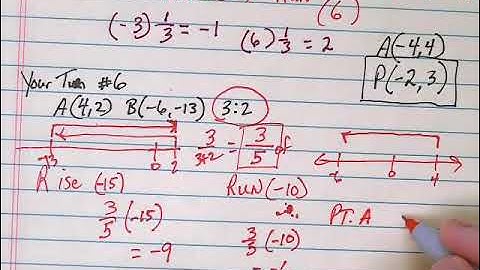 (6)
(-3) 1/3 = -1 (6) 1/3 = 2 A(-4,4)
P(-2, 3)
Your Turn #6
A(4,2) B(-6,-13) 3:2
3/3+2 = 3/5 of
-13 0 2 -6 0 4
Rise (-15) RUN (-10)
3/5 (-15) 3/5 (-10) PT. A
= -9